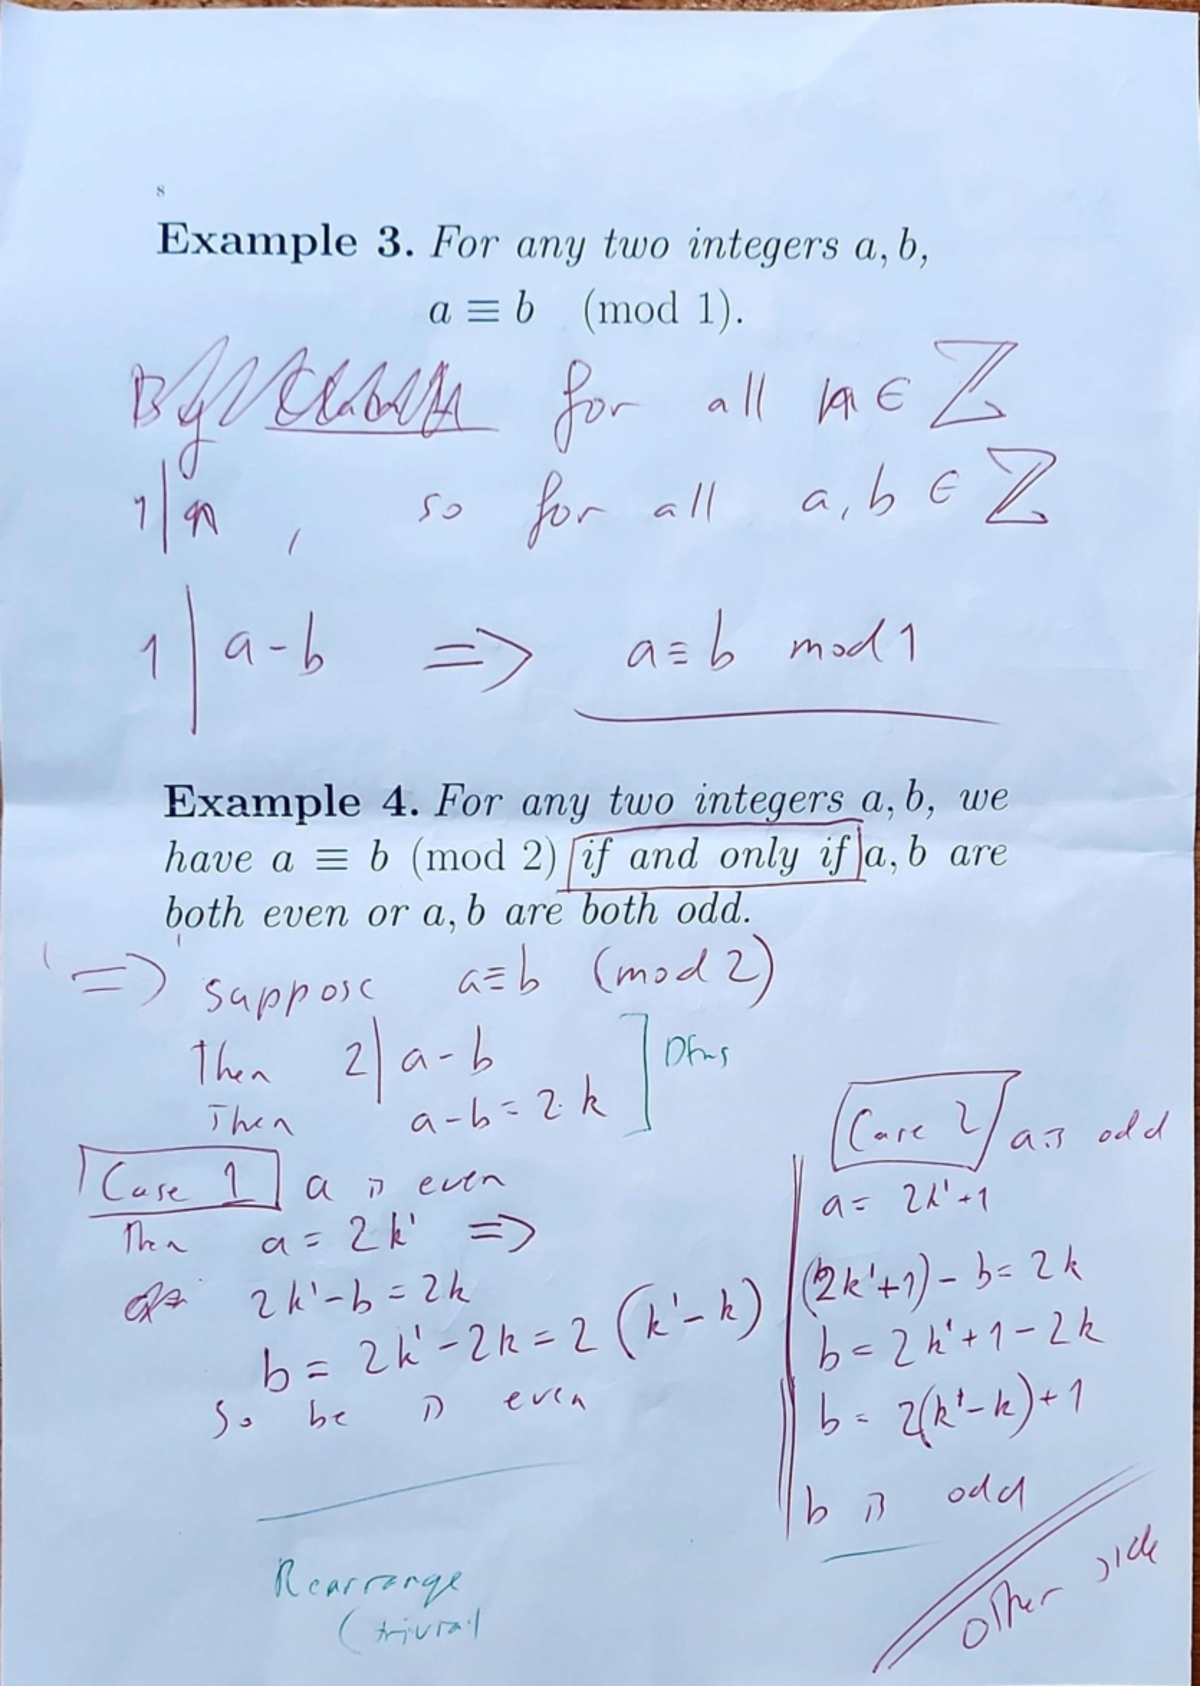 8
Example 3. For any two integers a, b,
a ≡ b (mod 1).
By for all n ∈ ℤ
1|n, so for all a, b ∈ ℤ
1 | a-b => a≡b mod 1
Example 4. For any two integers a, b, we
have a ≡ b (mod 2) if and only if a, b are
both even or a, b are both odd.
=> suppose a≡b (mod 2)
Then 2 | a-b
Then a-b = 2·k
Dfns
Case 1 a is even
Then a = 2k' =>
2k'-b = 2k
b = 2k'-2k = 2(k'-k)
So be is even
Rearrange
(trivial
Case 2 a is odd
a = 2k'+1
(2k'+1)-b = 2k
b = 2k'+1-2k
b = 2(k'-k)+1
b is odd
other side